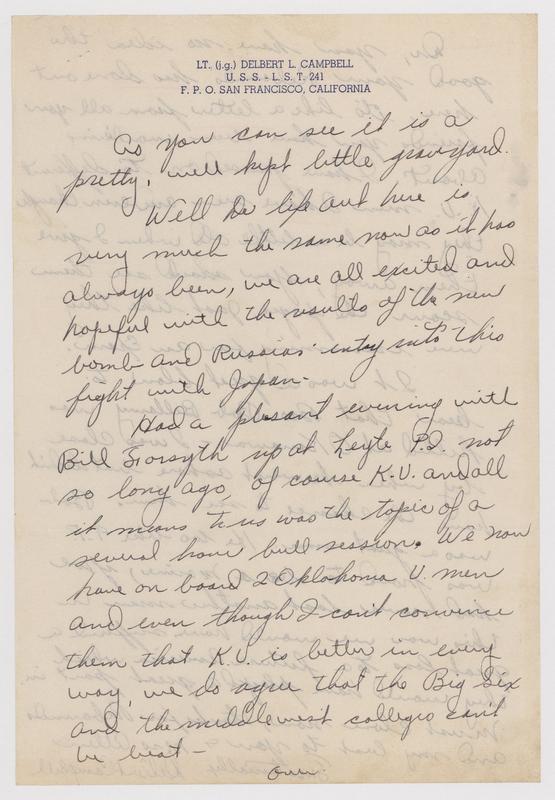 LT. (j.g.) DELBERT L. CAMPBELL
U. S. S. - L. S. T. 241
F. P. O. SAN FRANCISCO, CALIFORNIA
As you can see it is a
pretty, well kept little graveyard.
Well Dr life out here is
very much the same now as it has
always been, we are all excited and
hopeful with the results of the new
bomb and Russias' entry into this
fight with Japan-
Had a plesant evening with
Bill Forsyth up at Leyte P.I. not
so long ago, of course K.U. and all
it means to us was the topic of a
several hour bull session. We now
have on board 2 Oklahoma U. men
and even though I can't convince
them that K.U. is better in every
way, we do agree that the Big Six
and the middlewest colleges can't
be beat-
over.